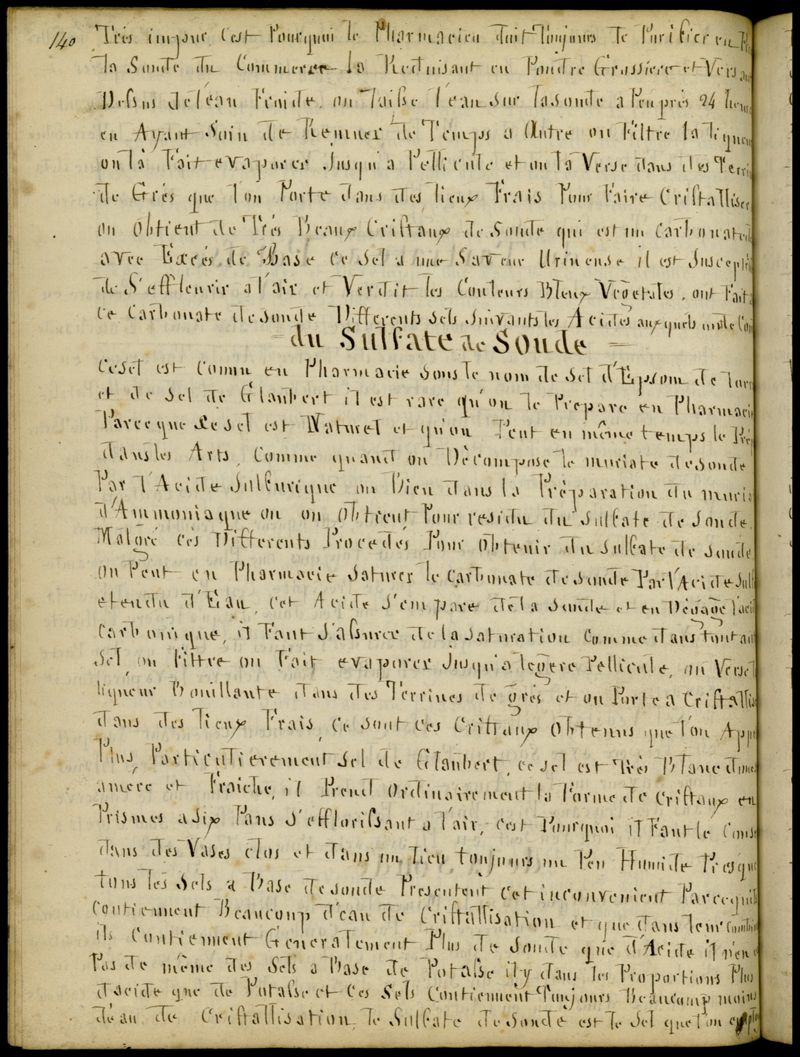 140
Très impur C'est Pourquoi le Pharmacien Doit Toujours le Purifier en
la Soude du Commerce la Reduisant en Poudre Grossiere et Vers
Dessus de l'eau Froide, on laisse l'eau Sur la Soude a Peu près 24 heu
en Ayant Soin de Remuer de Temps a Autre on Filtre la liqueu
on la Fait evaporer Jusqu'a Pellicule et on la Verse dans des Terri
de Grès que l'on Porte dans des lieux Frais Pour Faire Cristalliser
on Obtient de Très Beaux Cristaux de Soude qui est un Carbonate
avec Excés de Base Ce Sel a une Saveur Urineuse il est Suscepti
de S'effleurir a l'air et Verdit les Couleurs Bleux Vegetales, ont Fait
Ce Carbonate de Soude Differents Sels Suivants les Acides auxquels
du Sulfate de Soude
Ce Sel est Connu en Pharmacie Sous le nom de Sel d'Epsom de Lor
et de Sel de Glaubert il est rare qu'on le Prepare en Pharmacie
Parce que le Sel est Naturel et qu'on Peut en même temps le
dans les Arts, Comme quand on Décompose le muriate de Soude
Par l'Acide Sulfurique ou Bien dans la Préparation du muria
d'Ammoniaque on on Obtient Pour residu du Sulfate de Soude
Malgré Ces Differents Procedés Pour obtenir du Sulfate de Soude
on Peut en Pharmacie Saturer le Carbonate de Soude Par l'Acide Sulf
etendu d'Eau, Cet Acide S'empare de la Soude et en Dégage l'aci
Carbonique, il Faut S'assurer de la Saturation Comme dans tout au
Sel, on Filtre on Fait evaporer Jusqu'a legère Pellicule, on Verse
liqueur Bouillante dans des Terrines de grès et on Porte a Cristallis
dans des lieux Frais, Ce Sont Ces Cristaux Obtenus que l'on App
Plus Particulierement Sel de Glaubert, Ce Sel est Très Blanc d'une
amere et Fraiche, il Prend Ordinairement la Forme de Cristaux en
Prismes a Six Pans S'efflorissant a l'air, C'est Pourquoi il Faut le Cons
dans des Vases clos et dans un lieu toujours un Peu Humide Presque
tous les Sels a Base de Soude Presentent Cet inconvenient Parcequ'ils
Contiennent Beaucoup d'eau de Cristallisation et que dans leur
ils Contiennent Generalement Plus de Soude que d'Acide il n'en e
Pas de même des Sels a Base de Potasse il y dans les Proportions Plus
d'acide que de Potasse et Ces Sels Contiennent Toujours Beaucoup moins
d'eau de Cristallisation, le Sulfate de Soude est le Sel que l'on